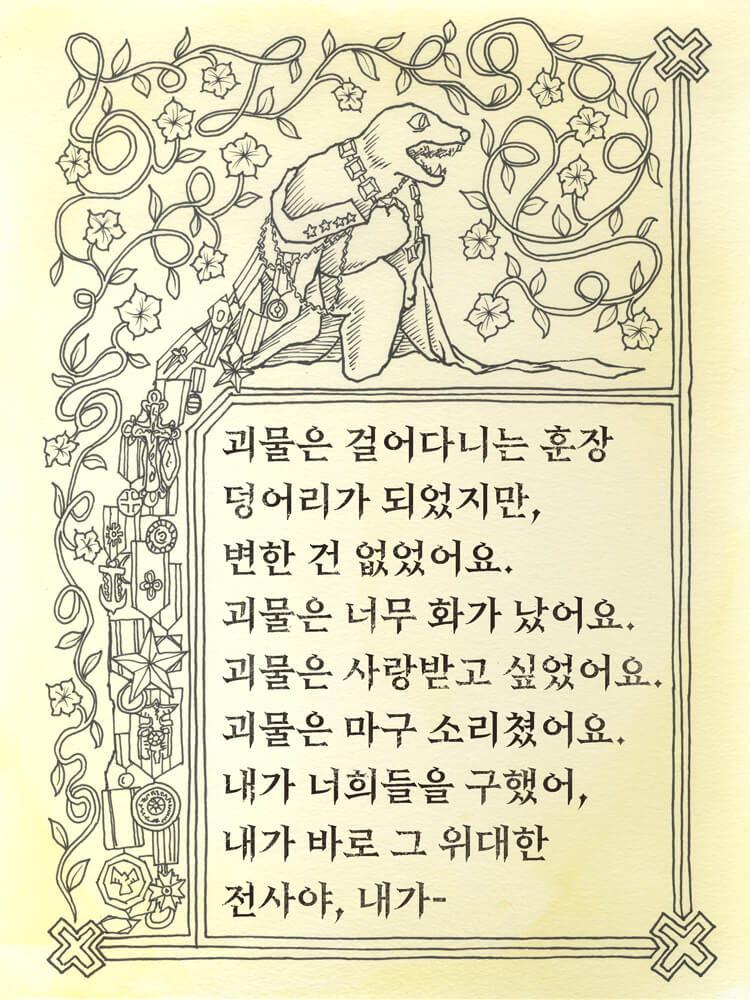 괴물은 걸어다니는 훈장
덩어리가 되었지만,
변한 건 없었어요.
괴물은 너무 화가 났어요.
괴물은 사랑받고 싶었어요.
괴물은 마구 소리쳤어요.
내가 너희들을 구했어,
내가 바로 그 위대한
전사야, 내가-